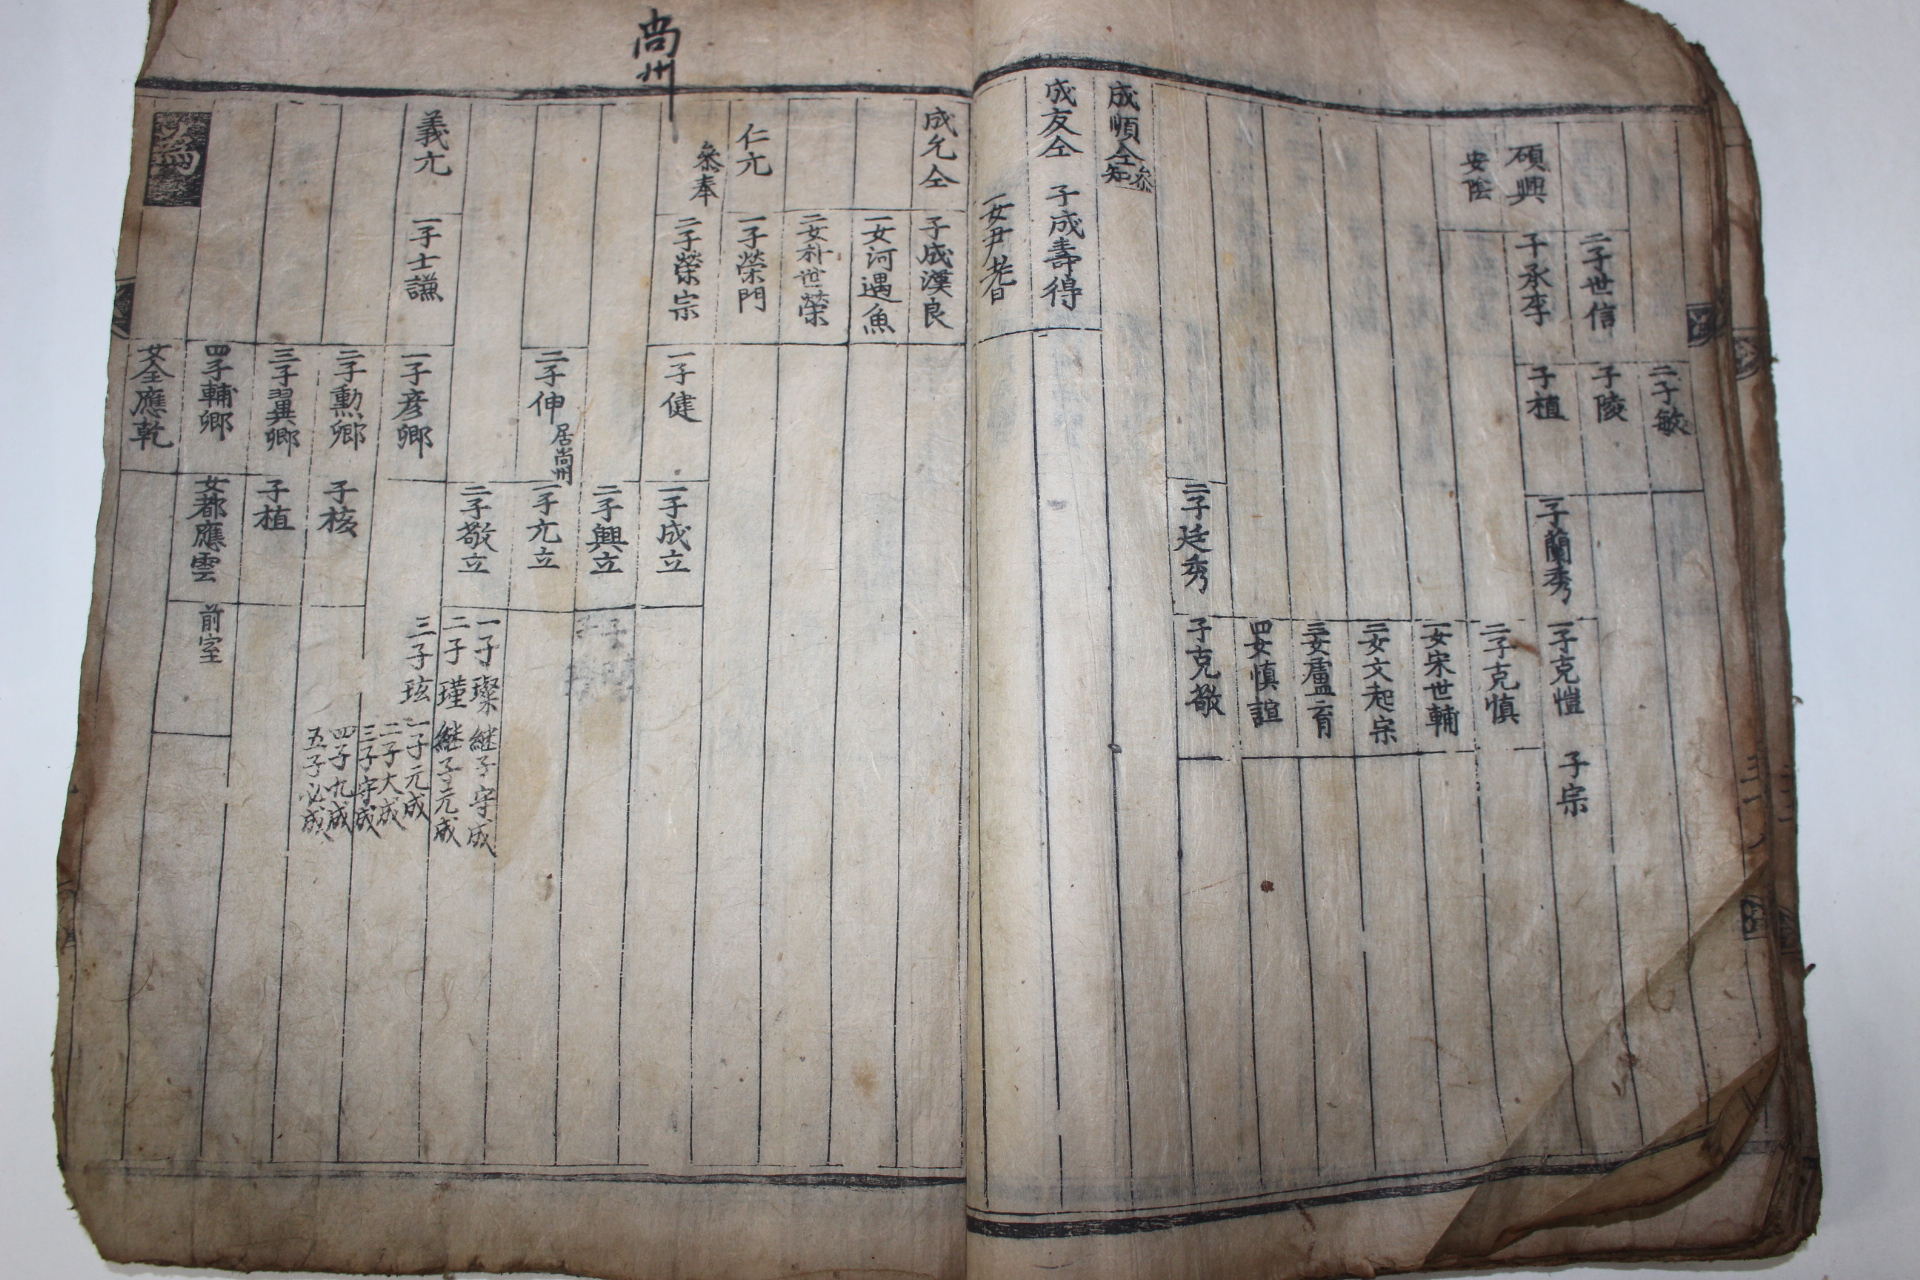 二子敏
二子世信
子陵
碩興
安陰
子承李
子植
子蘭秀
一子克愷
子宗
二子克慎
一女宋世輔
二女文起宗
三女盧育
四女慎諠
二子廷秀
子克敬
成順仝
參知
成友仝
子成壽得
一女尹耆
尚州
成允仝
子成漢良
一女河遇魚
二女朴世榮
仁亢
參奉
一子榮門
二子榮宗
一子健
一子成立
二子興立
二子伸
居尚州
一子亢立
二子敬立
一子璨
継子守成
二子瑾
継子元成
三子玹
一子元成
二子大成
三子守成
四子九成
五子必成
義亢
一子士謙
一子彦卿
二子勲卿
子核
三子翼卿
子植
四子輔卿
女都應雲
前室
女全應乾
為